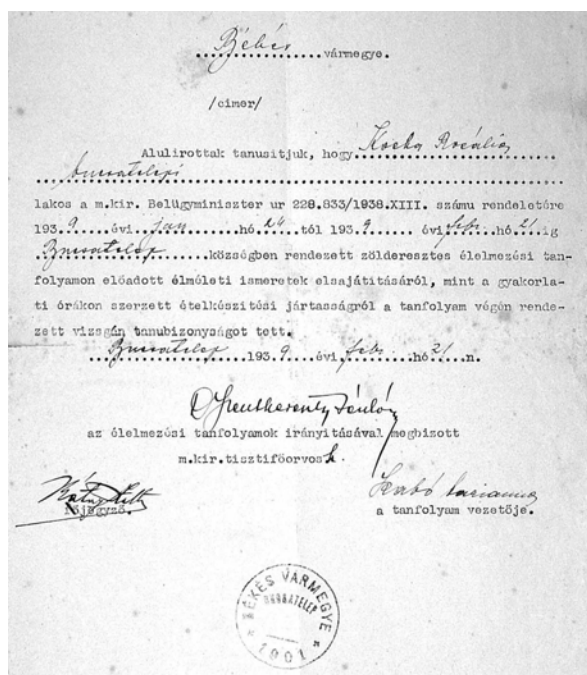 Békés vármegye.
/cimer/
Alulirottak tanusitjuk, hogy Kocka Rozália
lakos a m.kir. Belügyminiszter ur 228.833/1938.XIII. számu rendeletére
193.9 évi jan hó 24 tól 193.9 évi febr. hó 21 ig
községben rendezett zölderesztes élelmezési tan-
folyamon előadott élméleti ismeretek elsajátitásáról, mint a gyakorla-
ti órákon szerzett ételkészitési jártasságról a tanfolyam végén rende-
zett vizsgán tanubizonyságot tett.
193.9 évi febr. hó 21 n.
az élelmezési tanfolyamok irányitásával megbizott
m.kir.tisztifőorvos
főjegyző.
Szabó Marianna
a tanfolyam vezetője.
BÉKÉS VÁRMEGYE
1901